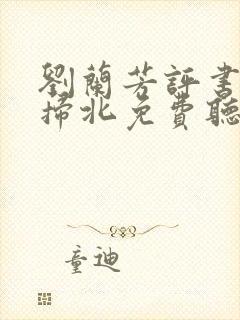 劉蘭芳評書
掃北免費聽
童迪